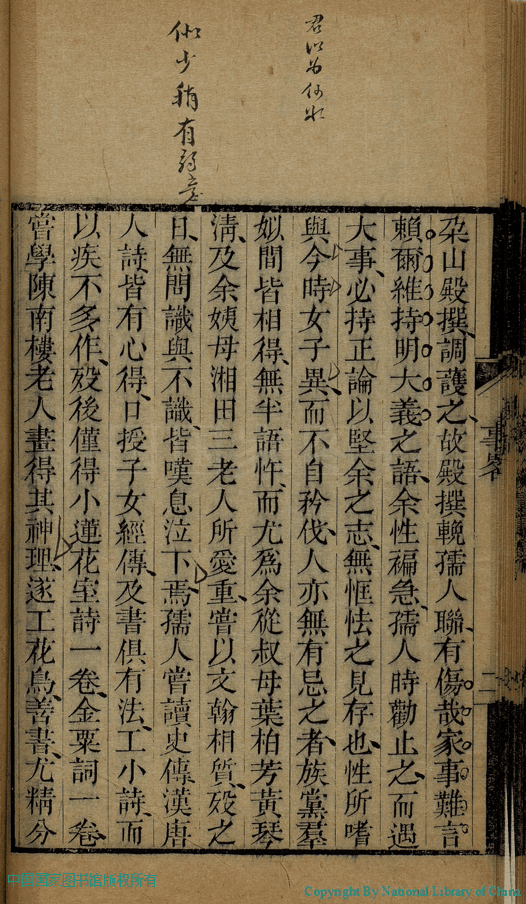 君以為何如
似少稍有
朶山殿撰調護之故殿撰輓孺人聯有傷哉家事難言
賴爾維持明大義之語余性褊急孺人時勸止之而遇
大事必持正論以堅余之志無恇怯之見存也性所嗜
與今時女子異而不自矜伐人亦無有忌之者族黨羣
姒間皆相得無半語忤而尤爲余從叔母葉柏芳黃琴
淸及余姨母湘田三老人所愛重嘗以文翰相質歿之
日無問識與不識皆嘆息泣下焉孺人嘗讀史傳漢唐
人詩皆有心得口授子女經傳及書俱有法工小詩而
以疾不多作歿後僅得小蓮花室詩一卷金粟詞一卷
嘗學陳南樓老人畫得其神理遂工花鳥善書尤精分
事畧
二
中國國家圖書館版權所有
Copyright By National Library of China